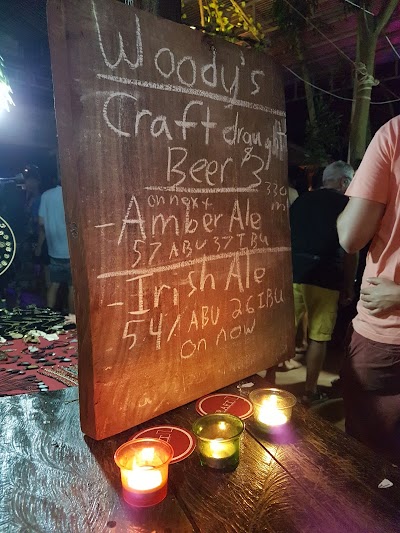 Woody's
Craft draught
Beer 3
330
ml
on next
- Amber Ale
57 ABU 37 IBU
- Irish Ale
54/ABU 26 IBU
on now